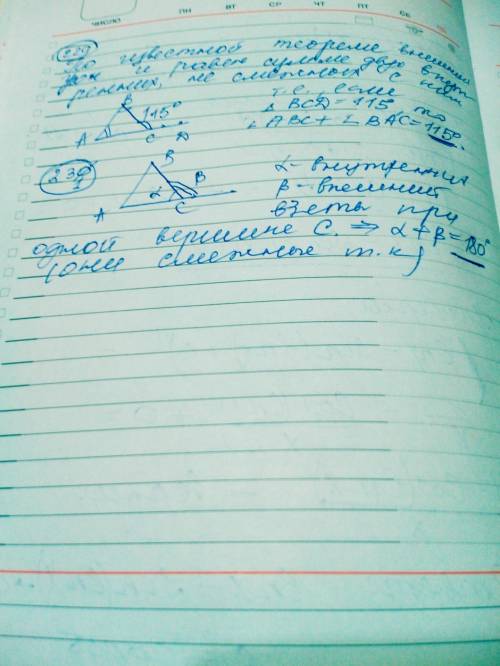 число ПН ВТ СР ЧТ ПТ СБ
229
По известной теореме внешний
и равен сумме двух внут
ренних, не смежных с ним
т.е. если
B 115° A C D
∠BCD = 115° то
∠ABC + ∠BAC = 115°.
230
B α β A C
α - внутренний
β - внешний
взеты при
одной вершине С. ⇒ α + β = 180°
(они смежные т.к)